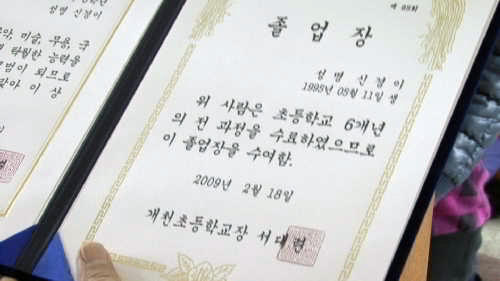 성명 신경이
악, 미술, 무용, 국
탁월한 능력을
범이 되므로
이 상
제 88호
졸업장
성명 신경이
1995년 05월 11일 생
위 사람은 초등학교 6개년
의 전 과정을 수료하였으므로
이 졸업장을 수여함.
2009년 2월 18일
개천초등학교장 서대현